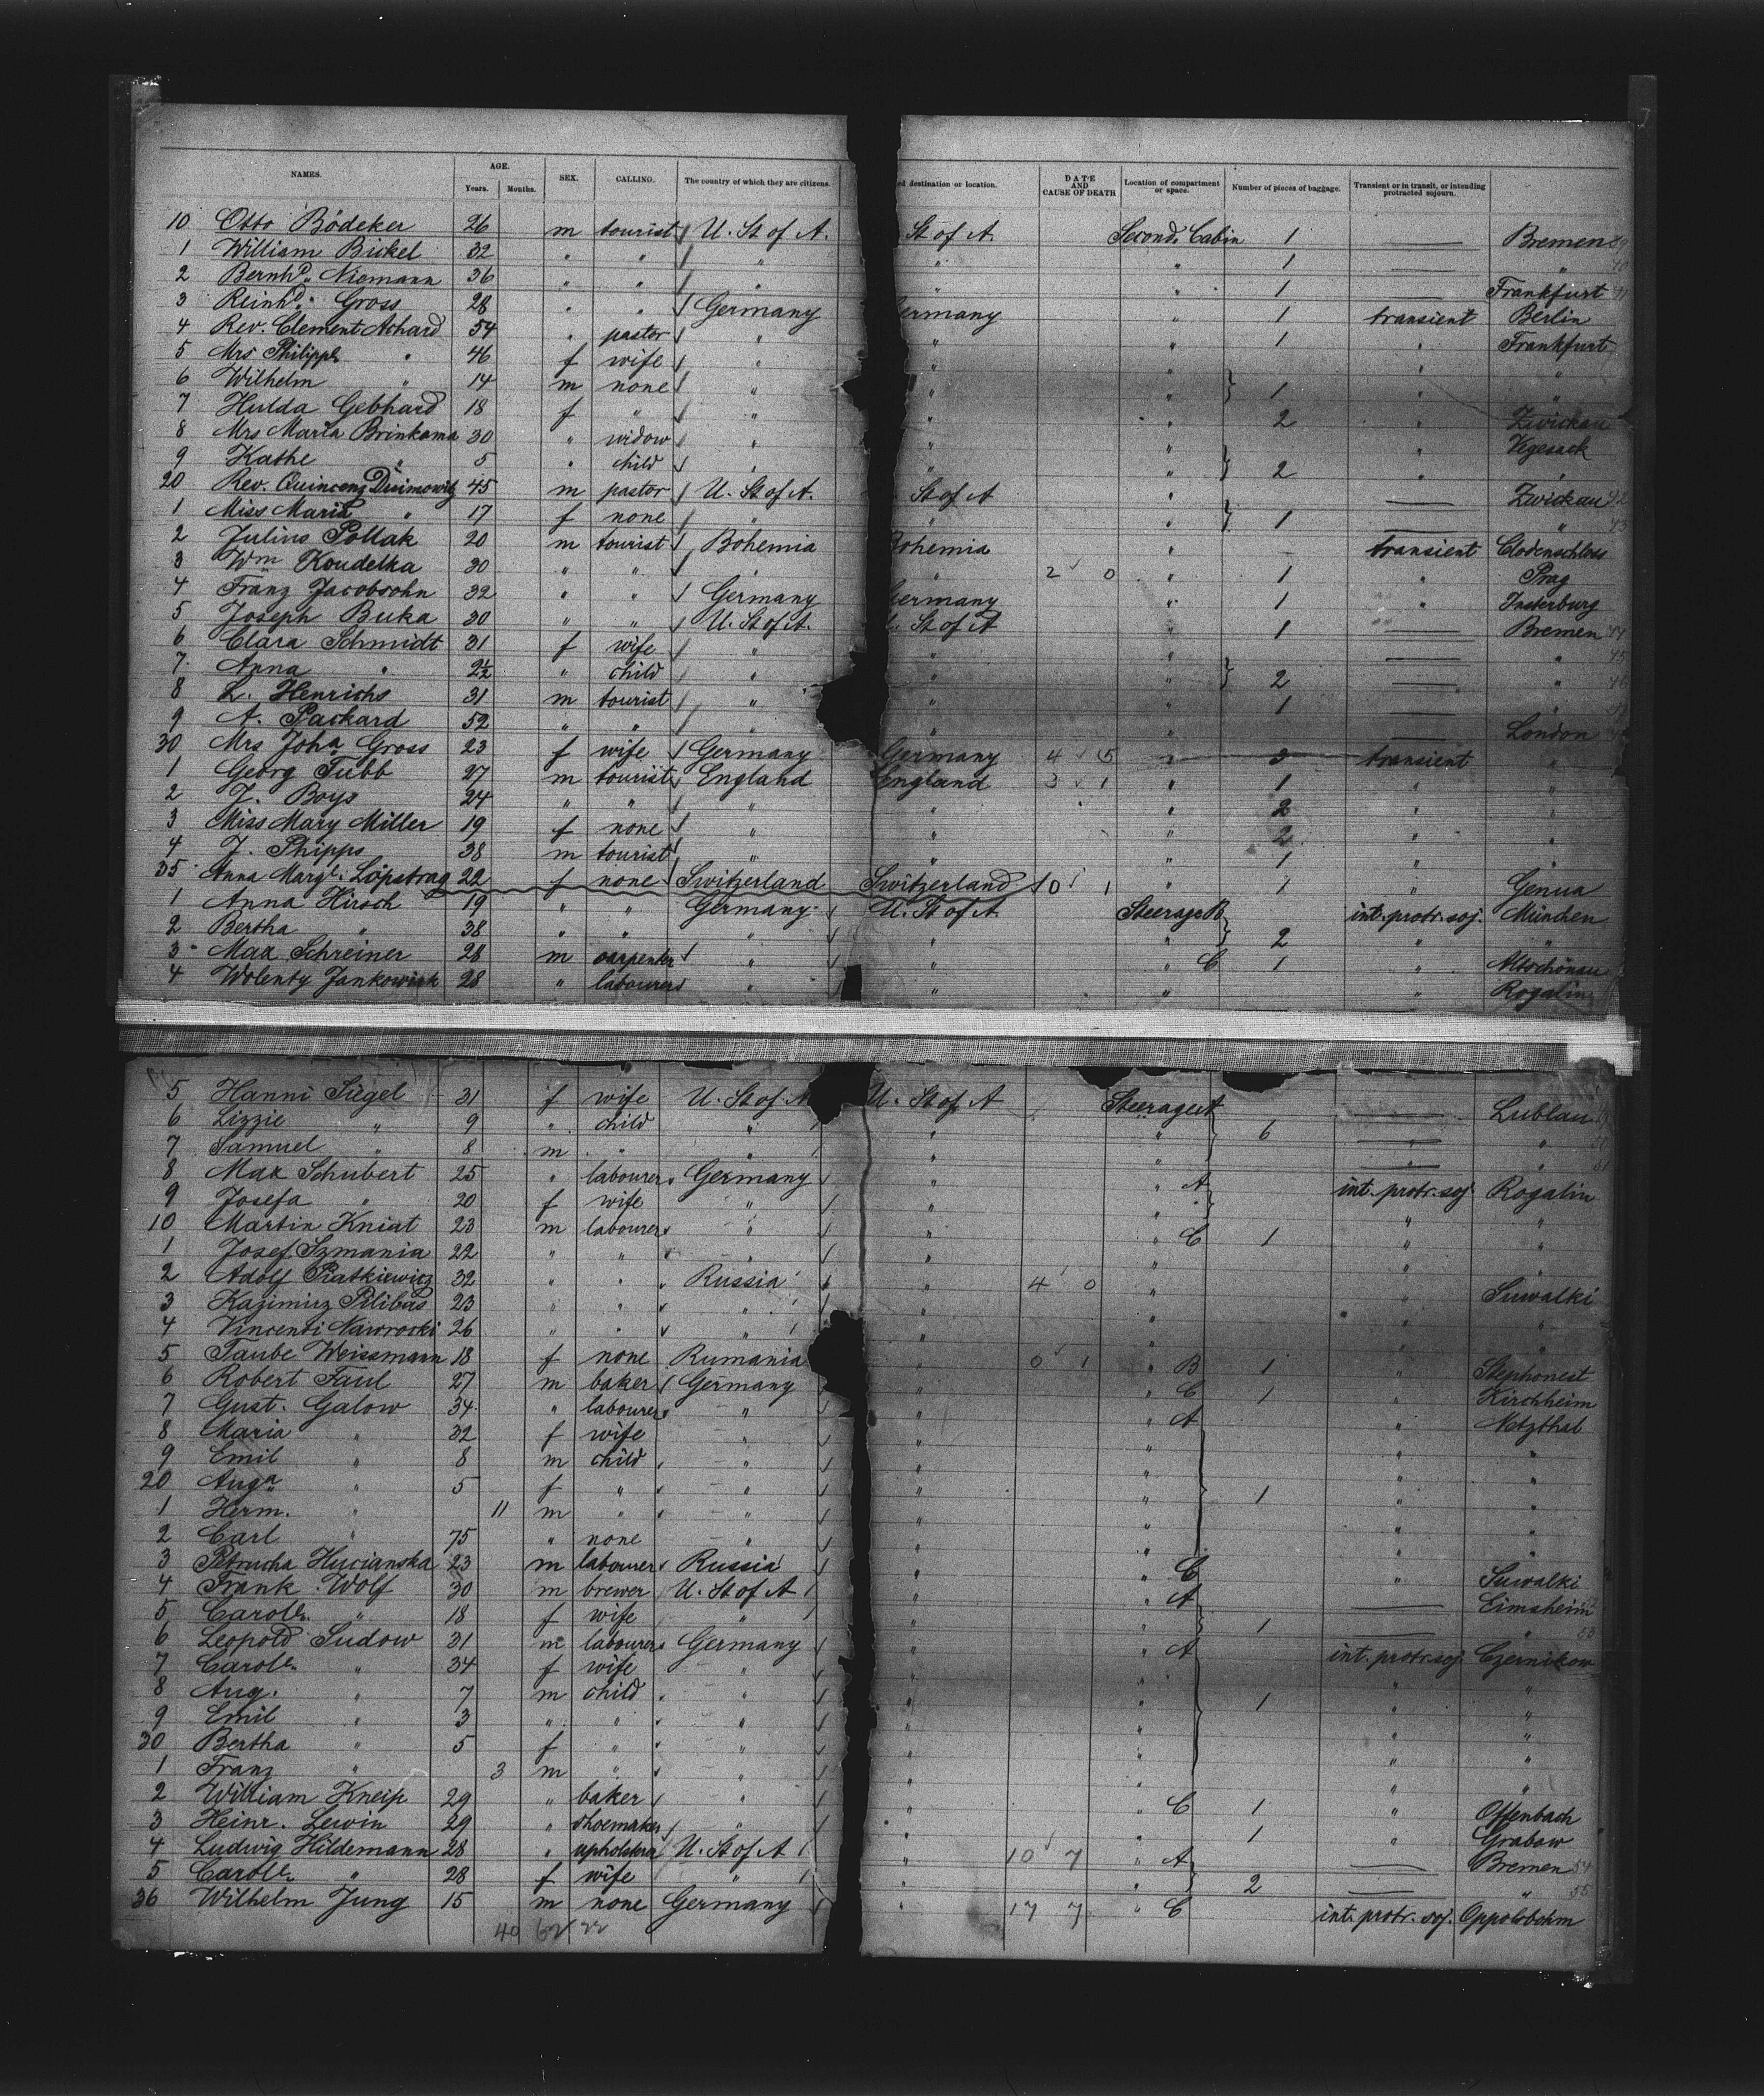 NAMES. AGE. Years. Months. SEX. CALLING. The country of which they are citizens. ed destination or location. DATE AND CAUSE OF DEATH Location of compartment or space. Number of pieces of baggage. Transient or in transit, or intending protracted sojourn.
10 Otto Bödeker 26 m tourist U. St of A. St of A. Second Cabin 1 — Bremen 39
1 William Bickel 32 " " " " " 1 — " 40
2 Bernhd. Niemann 36 " " " " " 1 — Frankfurt 41
3 Reinhd. Gross 28 " " Germany ermany " 1 transient Berlin
4 Rev. Clement Achard 54 " pastor " " " 1 " Frankfurt
5 Mrs Philippe " 46 f wife " " " " "
6 Wilhelm " 14 m none " " " 1 " "
7 Hulda Gebhard 18 f " " " " 2 " Zwickau
8 Mrs Maria Brinkama 30 " widow " " " " Vegesack
9 Kathe " 5 " child " " " 2 " "
20 Rev. 45 m pastor U. St of A. St of A " — Zwickau 42
1 Miss Maria " 17 f none " " " 1 — " 43
2 Julius Pollak 20 m tourist Bohemia Bohemia " - transient
3 Wm Koudelka 30 " " " " 2 0 " 1 " Prag
4 Franz Jacobsohn 32 " " Germany Germany " 1 " Insterburg
5 Joseph Buka 30 " " U. St of A. U. St of A " 1 — Bremen 44
6 Clara Schmidt 31 f wife " " " — " 45
7 Anna " 2½ " child " " " 2 — " 46
8 L. Henrichs 31 m tourist " " " 1 — "
9 A. Packard 52 " " " " " — London
30 Mrs Joha Gross 23 f wife Germany Germany 4 5 " 3 transient "
1 Georg Tubb 27 m tourist England England 3 1 " 1 " "
2 J. Boys 24 " " " " " 2 " "
3 Miss Mary Miller 19 f none " " " 2 " "
4 J. Phipps 38 m tourist " " " 1 " "
35 Anna Margt. Löpstrag 22 f none Switzerland Switzerland 0 1 " 1 " Genua
1 Anna Hirsch 19 " " Germany U. St of A Steerage B int. protr. soj. München
2 Bertha " 38 " " " " " 2 " "
3 Max Schreiner 28 m carpenter " " " C 1 " Altschönau
4 Wolenty Jankowiak 28 " labourer " " " " Rogalin
5 Hanni Siegel 31 f wife U. St of A U. St of A Steerage A — Lublau
6 Lizzie " 9 " child " " " 6 — " 50
7 Samuel " 8 m " " " " — " 51
8 Max Schubert 25 " labourer Germany " " A int. protr. soj Rogalin
9 Josefa " 20 f wife " " " " "
10 Martin Kniat 23 m labourer " " " C 1 " "
1 Josef Szmania 22 " " " " " " "
2 Adolf Piatkiewicz 32 " " Russia " 4 0 " " Suwalki
3 Kazimirz Pilibas 23 " " " " " " "
4 Vincenti Nawrocki 26 " " " " " "
5 Taube Weissmann 18 f none Rumania " 0 1 " B 1 " Stephonest
6 Robert Faul 27 m baker Germany " " C 1 " Kirchheim
7 Gust. Galow 34 " labourer " " " A " Netzthal
8 Maria " 32 f wife " " " " "
9 Emil " 8 m child " " " " "
20 Auga " 5 f " " " " 1 " "
1 Herm. " 11 m " " " " " "
2 Carl " 75 " none " " " " "
3 Petrucha Hucianska 23 m labourer Russia " " C " Suwalki
4 Frank Wolf 30 m brewer U. St of A " " A — Eimsheim
5 Carole. " 18 f wife " " " 1 — " 53
6 Leopold Sudow 31 m labourer Germany " " A int. protr. soj. Czernikow
7 Carole. " 34 f wife " " " " "
8 Aug. " 7 m child " " " 1 " "
9 Emil " 3 " " " " " " "
30 Bertha " 5 f " " " " " "
1 Franz " 3 m " " " " " "
2 William Kneip 29 " baker " " " C 1 " Offenbach
3 Heinr. Lewin 29 " shoemaker " " " 1 " Grabow
4 Ludwig Hildemann 28 " upholsterer U. St of A " 10 7 " A — Bremen 54
5 Carole. " 28 f wife " " " 2 — " 55
36 Wilhelm Jung 15 m none Germany " 17 7 " C int. protr. soj.
40 62 22